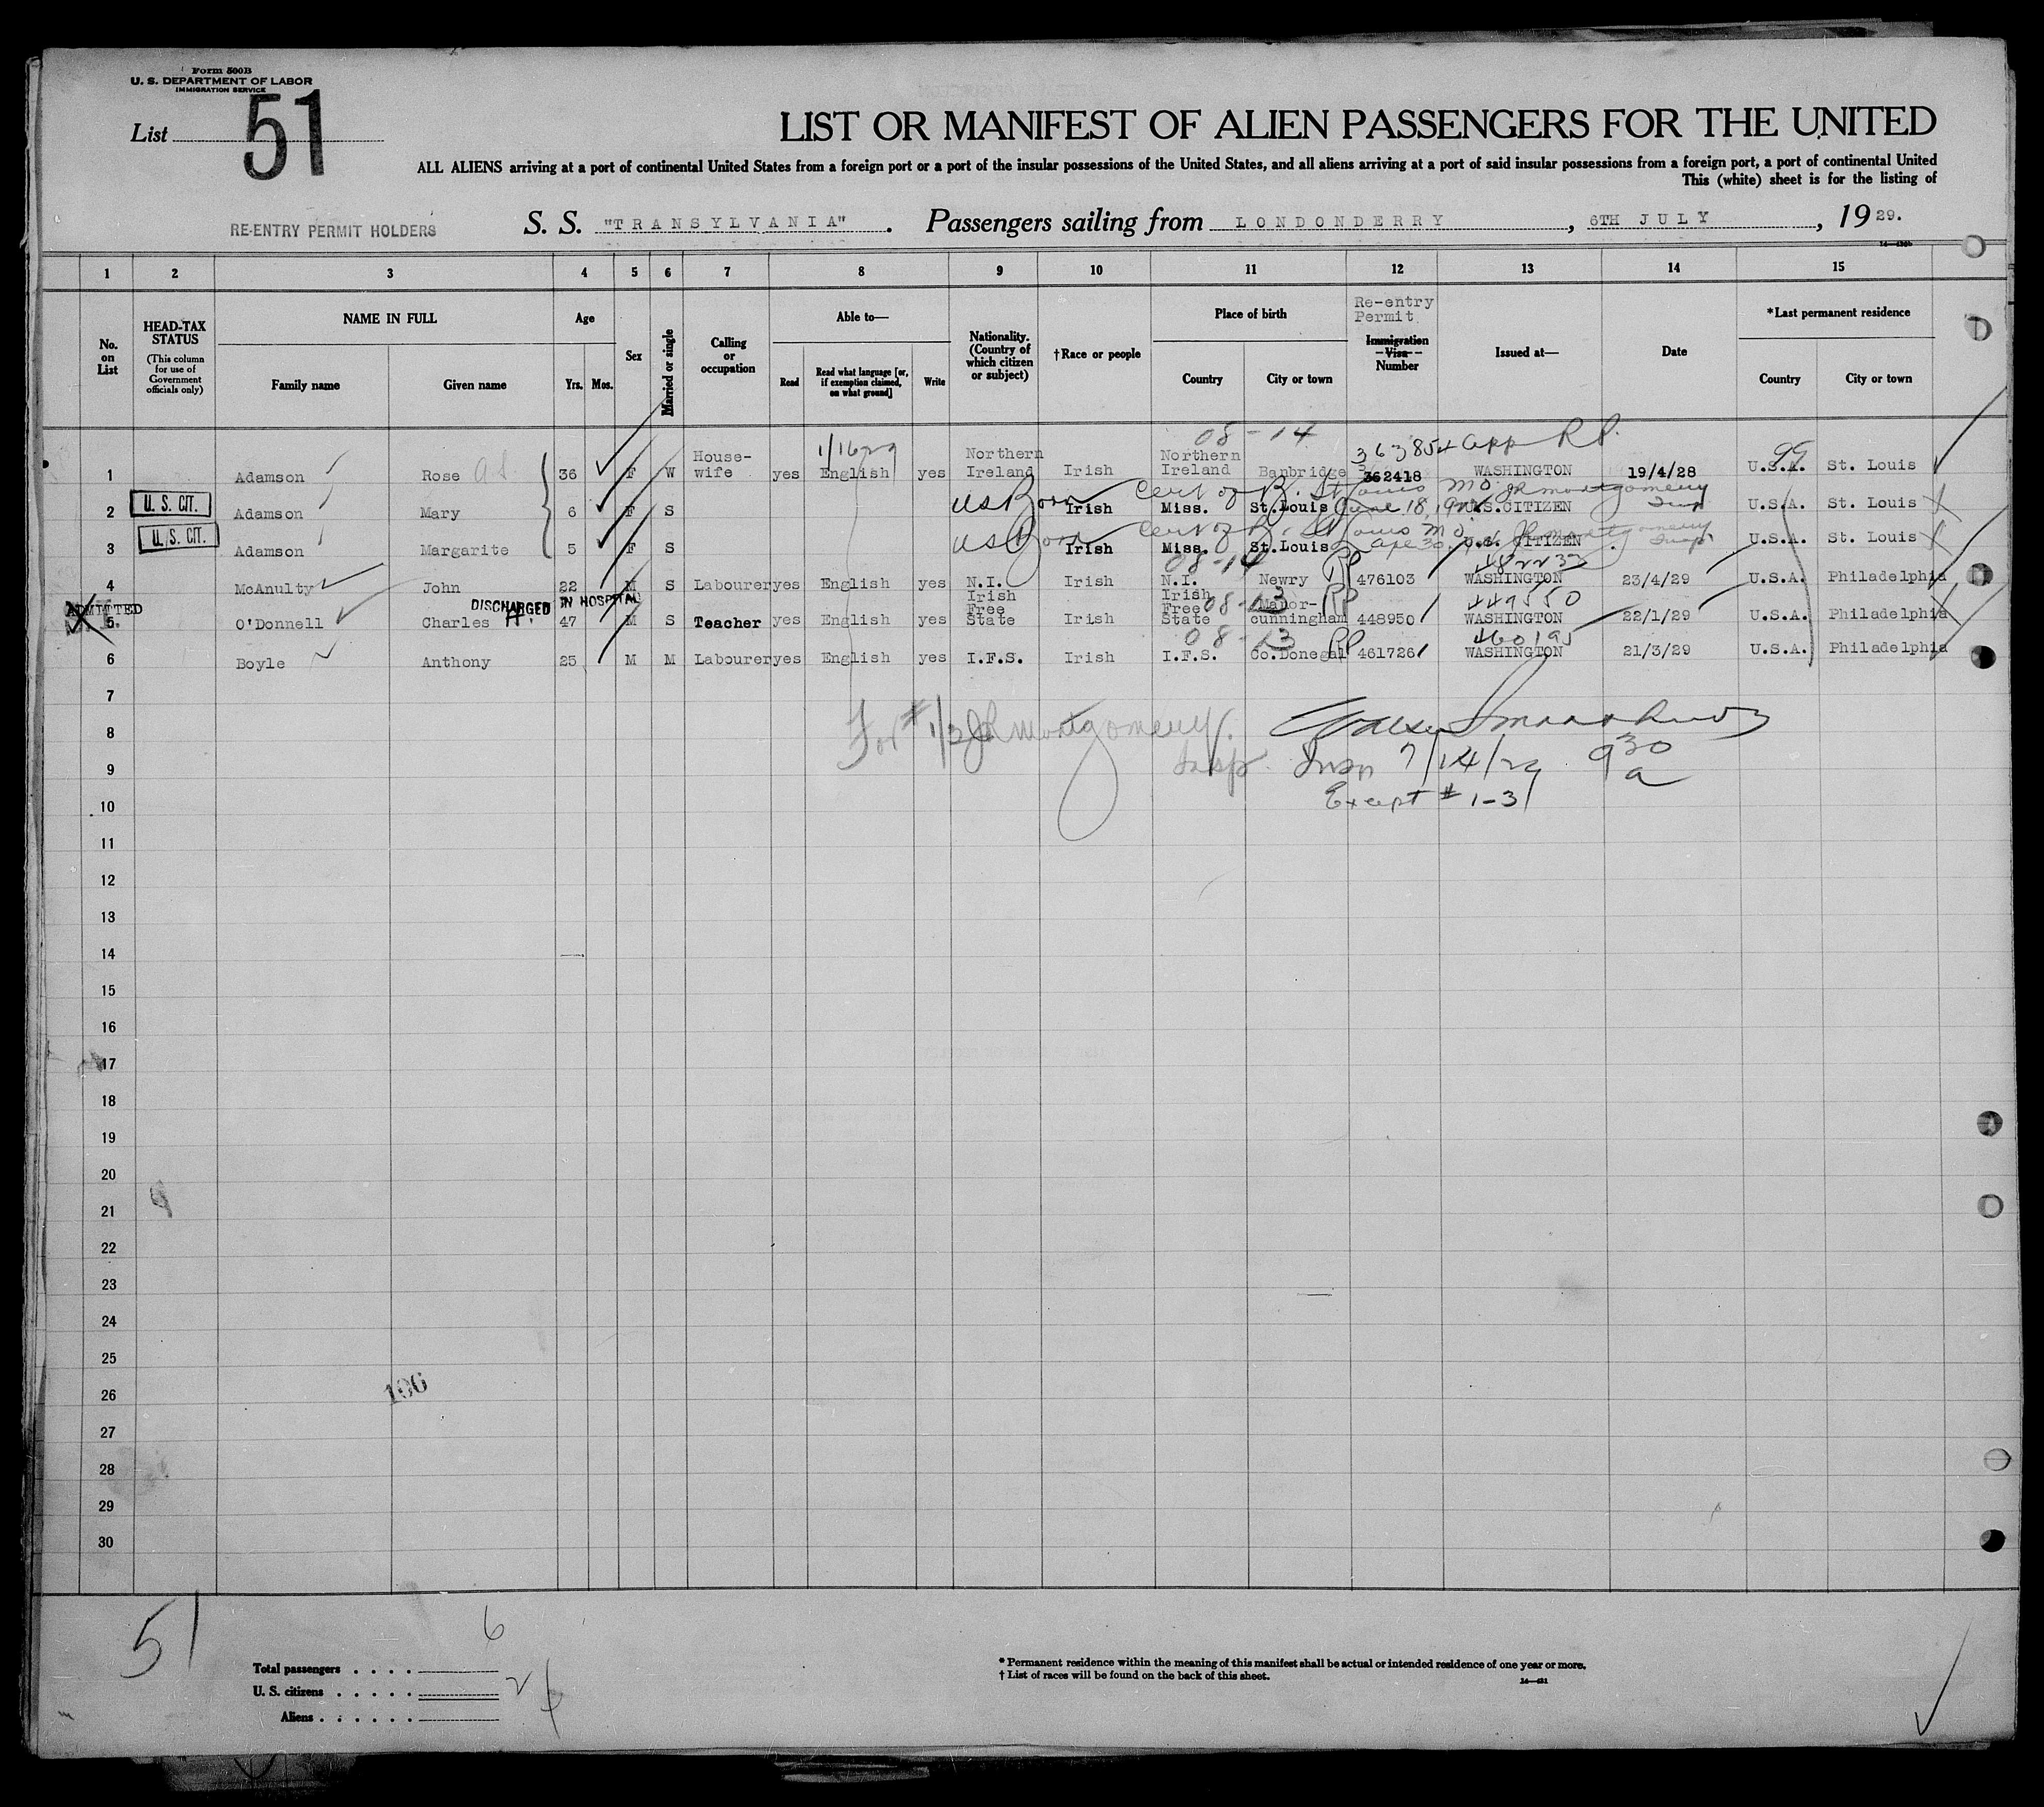 Form 500B
U. S. DEPARTMENT OF LABOR
IMMIGRATION SERVICE
List 51
LIST OR MANIFEST OF ALIEN PASSENGERS FOR THE UNITED
ALL ALIENS arriving at a port of continental United States from a foreign port or a port of the insular possessions of the United States, and all aliens arriving at a port of said insular possessions from a foreign port, a port of continental United
This (white) sheet is for the listing of
RE-ENTRY PERMIT HOLDERS S. S. "TRANSYLVANIA" . Passengers sailing from LONDONDERRY , 6TH JULY , 19 29.
1 2 3 4 5 6 7 8 9 10 11 12 13 14 15
No. on List
HEAD-TAX STATUS (This column for use of Government officials only)
NAME IN FULL
Family name Given name
Age
Yrs. Mos.
Sex
Married or single
Calling or occupation
Able to—
Read Read what language [or, if exemption claimed, on what ground] Write
Nationality. (Country of which citizen or subject)
†Race or people
Place of birth
Country City or town
Re-entry Permit
Immigration Visa Number
Issued at—
Date
*Last permanent residence
Country City or town
08-14
363854 app RP.
1 Adamson Rose 36 F W House-wife yes English yes Northern Ireland Irish Northern Ireland Banbridge 362418 WASHINGTON 19/4/28 U.S.A. St. Louis
99
US Born Cert of B. St Louis Mo. JR Montgomery
U. S. CIT. 2 Adamson Mary 6 F S Irish Miss. St.Louis June 18, U.S.CITIZEN U.S.A. St. Louis
US Born Cert of B. St Louis Mo.
U. S. CIT. 3 Adamson Margarite 5 F S Irish Miss. St.Louis U.S. CITIZEN U.S.A. St. Louis
08-14 RP 482232
4 McAnulty John 22 M S Labourer yes English yes N.I. Irish N.I. Newry 476103 WASHINGTON 23/4/29 U.S.A. Philadelphia
ADMITTED DISCHARGED IN HOSPITAL
08-13 RP 449550
5 O'Donnell Charles 47 M S Teacher yes English yes Irish Free State Irish Irish Free State Manor-cunningham 448950 WASHINGTON 22/1/29 U.S.A. Philadelphia
08-13 RP 460195
6 Boyle Anthony 25 M M Labourer yes English yes I.F.S. Irish I.F.S. Co.Donegal 461726 WASHINGTON 21/3/29 U.S.A. Philadelphia
7
For # 1/3 JR Montgomery.
8
Insp.
Insp 7/14/29 930 a
9
Except # 1-3
10
11
12
13
14
15
16
17
18
19
20
21
22
23
24
25
26
106
27
28
29
30
51
6
Total passengers . . . .
U. S. citizens . . . . . 2
Aliens . . . . . . 4
* Permanent residence within the meaning of this manifest shall be actual or intended residence of one year or more.
† List of races will be found on the back of this sheet.